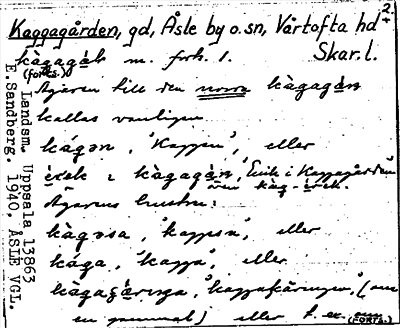 2.
Kaggagården, gd, Åsle by o. sn, Vårtofta hd
Skar. l.
kàgagáɳ m. forts. 1.
(forts.)
Ägaren till den norra kàgagàɳ
kallas vanligen
kágən, "Kaggen", eller
èrɩk ɩ kàgagàɳ, "Erik i Kaggagården"
även kàg-èrɩk.
Ägarens hustru:
kàgəsa, "kaggsa", eller
kága, "kagga", eller
kàgaçärɩŋa, "kaggakäringen", (om
en gammal) eller t. ex.
(FORTS.)
Landsm. Uppsala 13863
E. Sandberg. 1940. ÅSLE VGL.